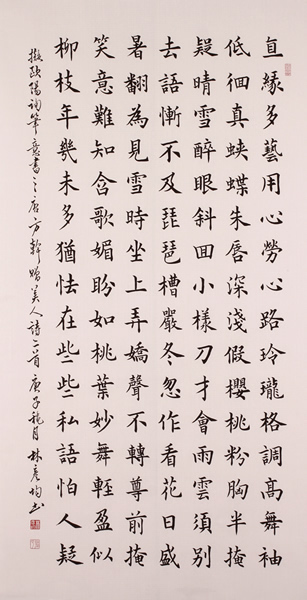 直緣多藝用心勞心路玲瓏格調高舞袖
低徊真蛺蝶朱唇深淺假櫻桃粉胸半掩
疑晴雪醉眼斜回小樣刀才會雨雲須別
去語慚不及琵琶槽嚴冬忽作看花日盛
暑翻為見雪時坐上弄嬌聲不轉尊前掩
笑意難知含歌媚盼如桃葉妙舞輕盈似
柳枝年幾未多猶怯在些些私語怕人疑
擬歐陽詢筆意書之唐方幹贈美人詩二首庚子月林彥均書